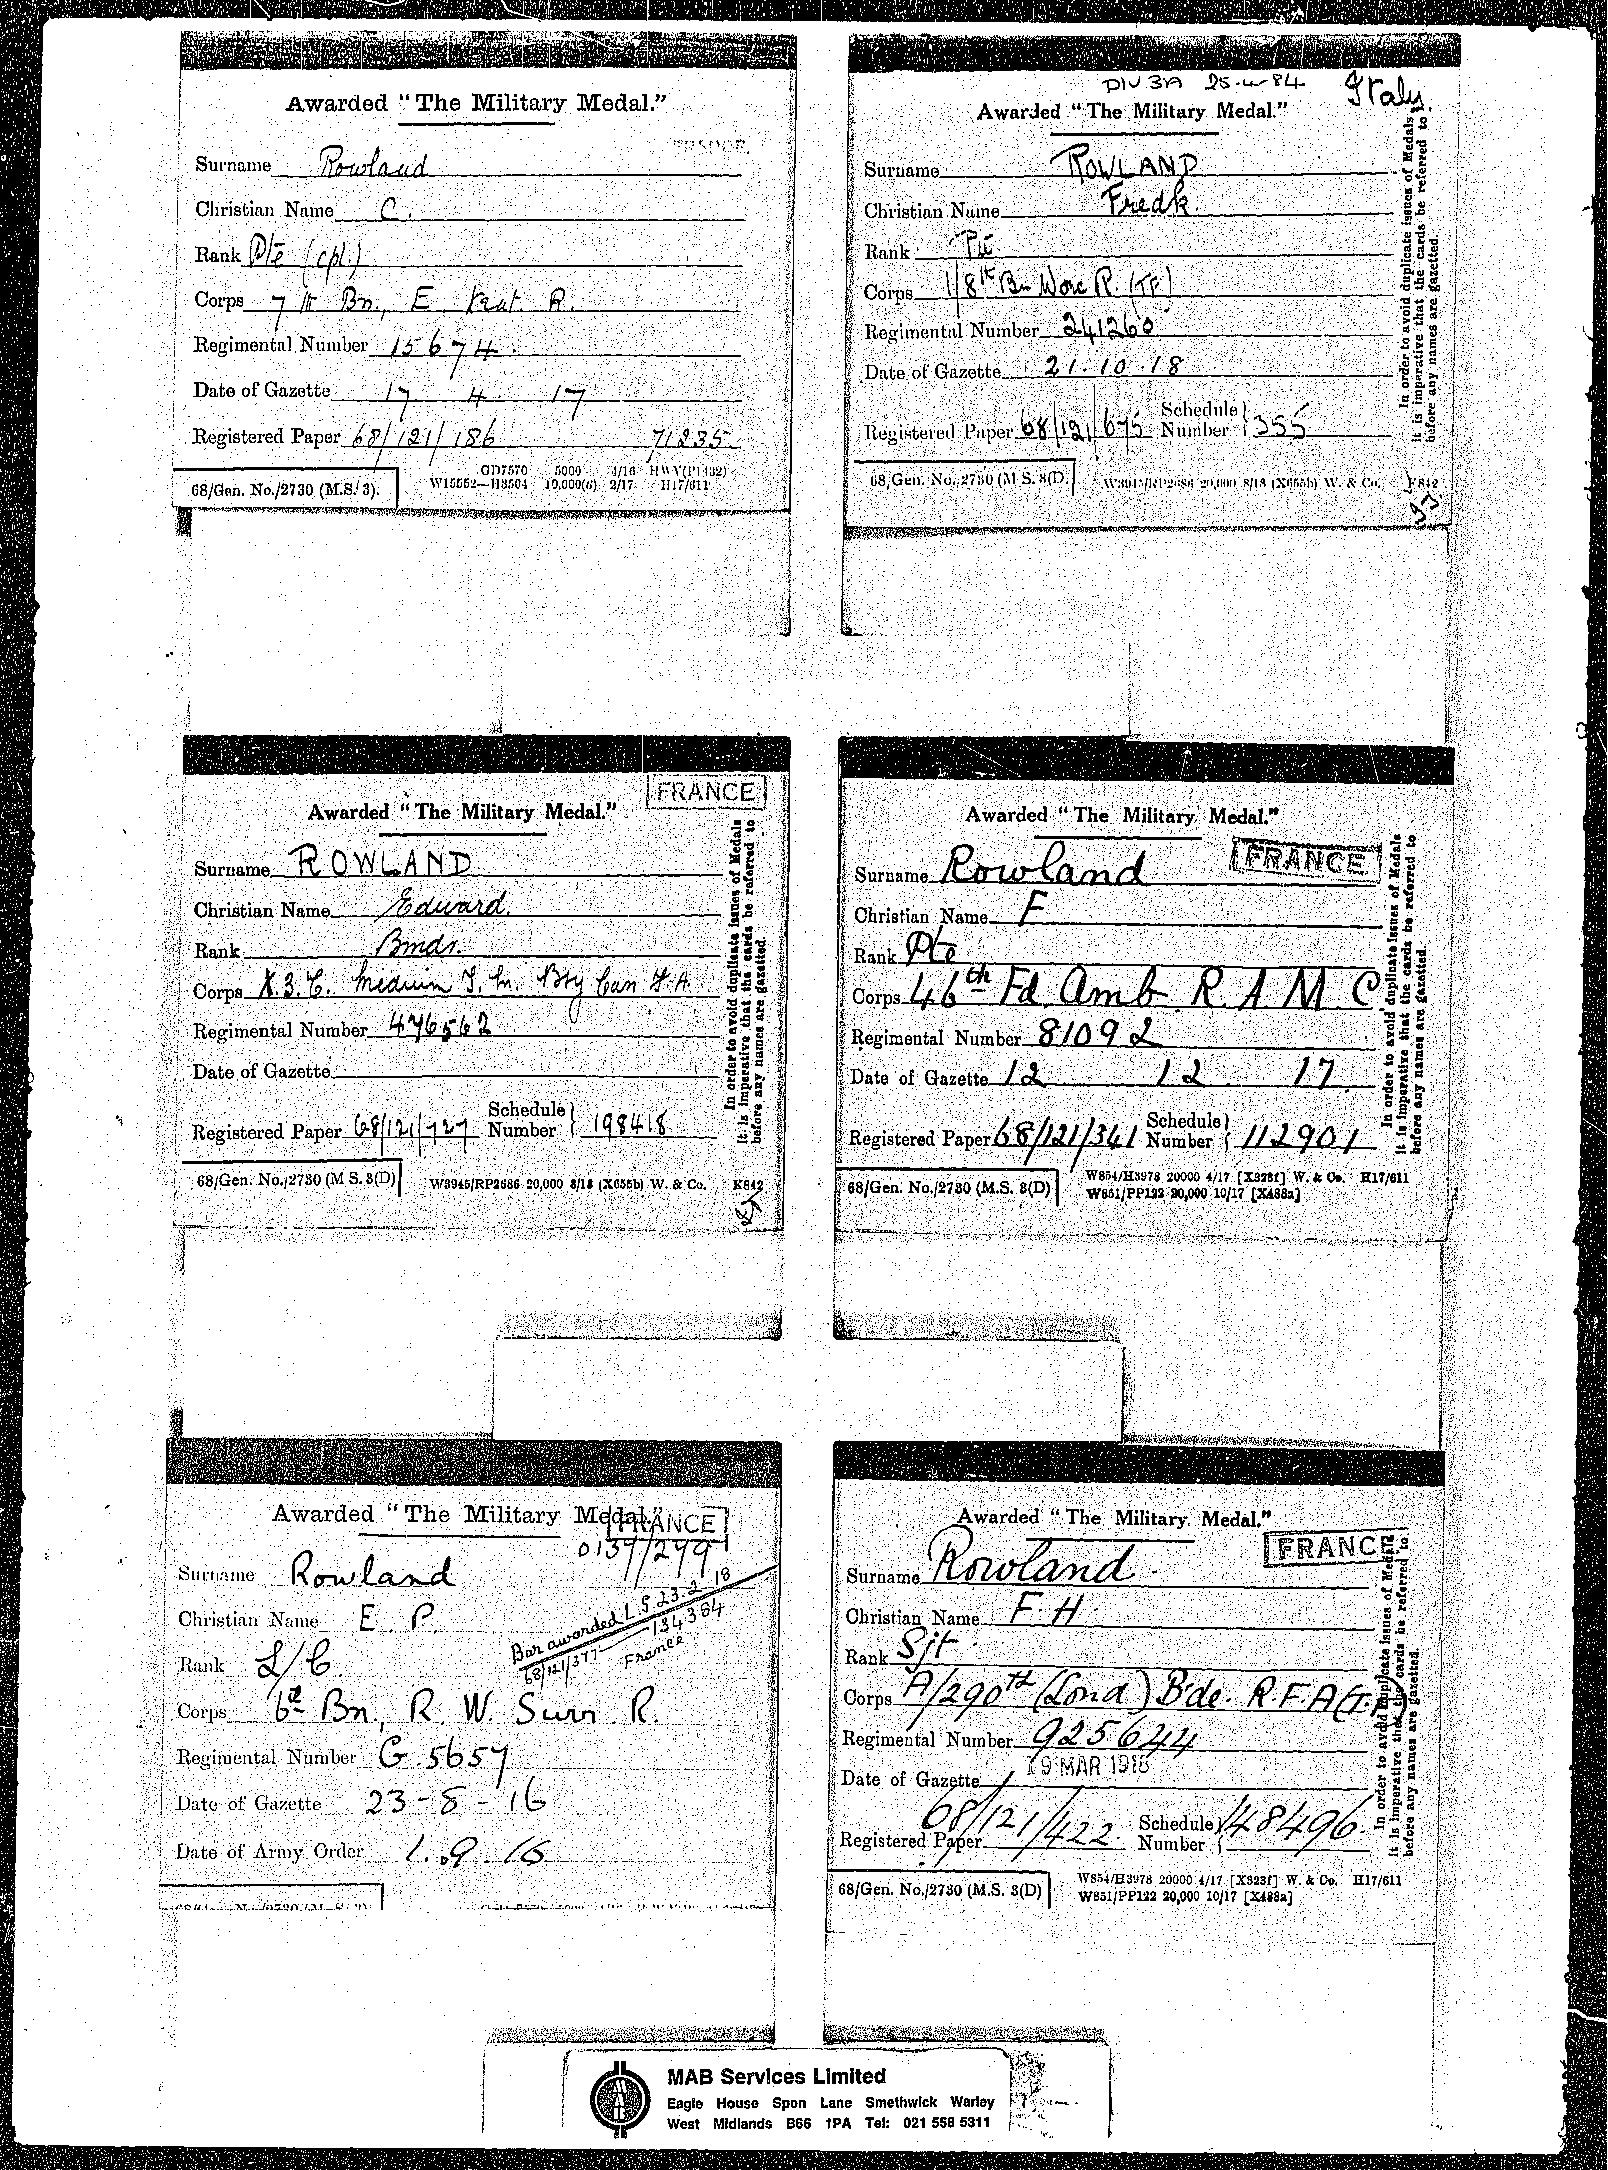 Awarded "The Military Medal."
Surname Rowland
Christian Name C.
Rank Pte (cpl.)
Corps 7th Bn., E Kent. R.
Regimental Number 15674.
Date of Gazette 17 4 17
Registered Paper 68/121/186 71235
GD7570 5000 4/16 HWV(P1432)
68/Gen. No./2730 (M.S. 3). W15562—H3504 10,000(6) 2/17 H17/611
DIV 3A 25-4-84 Italy.
Awarded "The Military Medal."
Surname ROWLAND
Christian Name Fredk.
Rank Pte
Corps 1/8th Bn Worc R. (TF)
Regimental Number 241260
Date of Gazette 21.10.18
Registered Paper 68/121/675 Schedule Number 355
68/Gen. No./2730 (M S. 3(D). 20,000 8/18 (X655b) W. & Co. K842
In order to avoid duplicate issues of Medals
it is imperative that the cards be referred to
before any names are gazetted.
FRANCE
Awarded "The Military Medal."
Surname ROWLAND
Christian Name Edward.
Rank Bmdr.
Corps X.3.C. Medium T. M. Bty Can F.A.
Regimental Number 476562
Date of Gazette
Registered Paper 68/121/727 Schedule Number 198418
68/Gen. No./2730 (M S. 3(D) W3945/RP2686 20,000 8/18 (X655b) W. & Co. K842
In order to avoid duplicate issues of Medals
it is imperative that the cards be referred to
before any names are gazetted.
Awarded "The Military Medal."
FRANCE
Surname Rowland
Christian Name F
Rank Pte
Corps 46th Fd. Amb. R A M C
Regimental Number 81092
Date of Gazette 12 12 17
Registered Paper 68/121/341 Schedule Number 112901
68/Gen. No./2730 (M.S. 3(D) W854/H3978 20000 4/17 [X323f] W. & Co. H17/611
W851/PP122 20,000 10/17 [X488a]
In order to avoid duplicate issues of Medals
it is imperative that the cards be referred to
before any names are gazetted.
Awarded "The Military Medal."
FRANCE
0137/299
Surname Rowland
Christian Name E P.
Bar awarded L.G. 23.2.18
68/121/377 — 134384
France
Rank L/C
Corps 6th Bn, R. W. Surr. R.
Regimental Number G.5657
Date of Gazette 23-8-16
Date of Army Order 1.9.16
Awarded "The Military Medal."
FRANCE
Surname Rowland
Christian Name F. H
Rank Sjt
Corps A/290th (Lond) Bde. R.F.A (T.F)
Regimental Number 925644
Date of Gazette 19 MAR 1918
Registered Paper 68/121/422 Schedule Number 148496.
68/Gen. No./2730 (M.S. 3(D) W854/H3978 20000 4/17 [X323f] W. & Co. H17/611
W851/PP122 20,000 10/17 [X488a]
In order to avoid duplicate issues of Medals
it is imperative that the cards be referred to
before any names are gazetted.
MAB Services Limited
Eagle House Spon Lane Smethwick Warley
West Midlands B66 1PA Tel: 021 558 5311